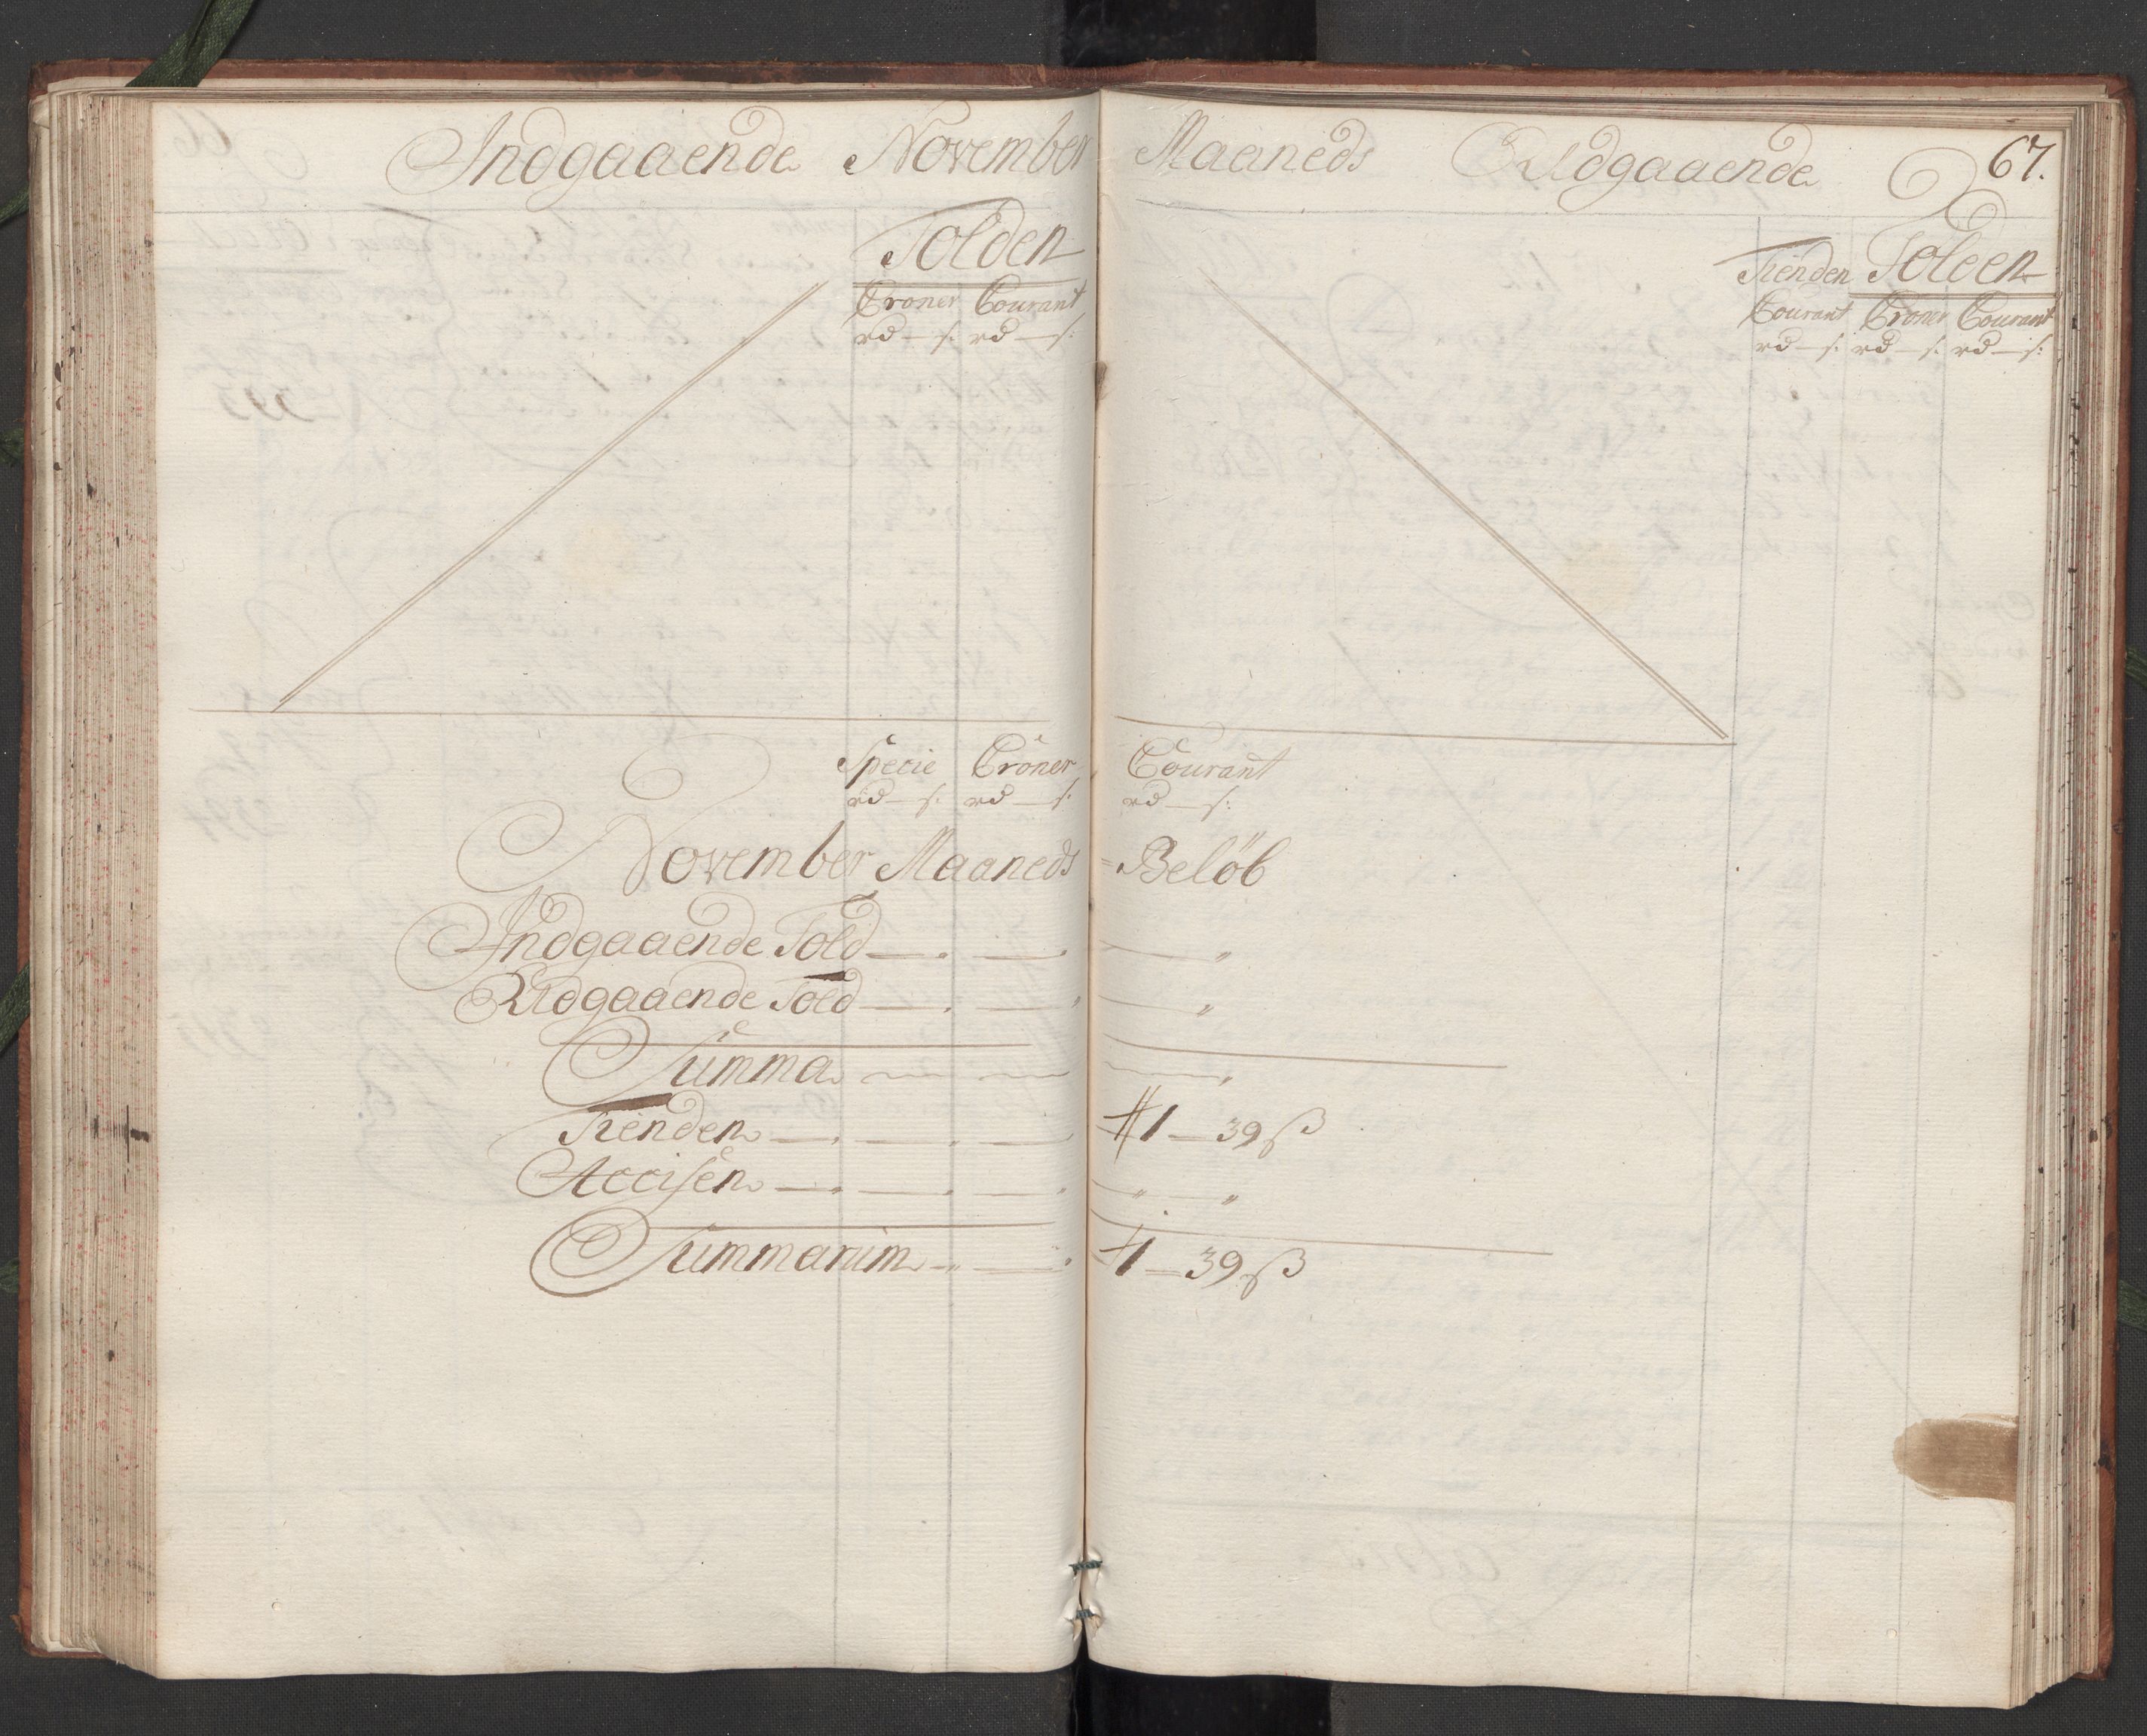 Indgaaende November Maaneds Udgaaende 67.
Tolden
Croner Courant
rd — s: rd — s:
Tienden Tolden
Courant Croner Courant
rd — s: rd — s: rd — s:
Specie Croner Courant
rd — s: rd — s: rd — s:
November Maaneds = Belöb
Indgaaende Told — " — " — "
Udgaaende Told — " — " — "
Summa — — — "
Tienden — " — " — #1 — 39 ß
Accisen — " — " — " — "
Summarum — " — " #1 — 39 ß